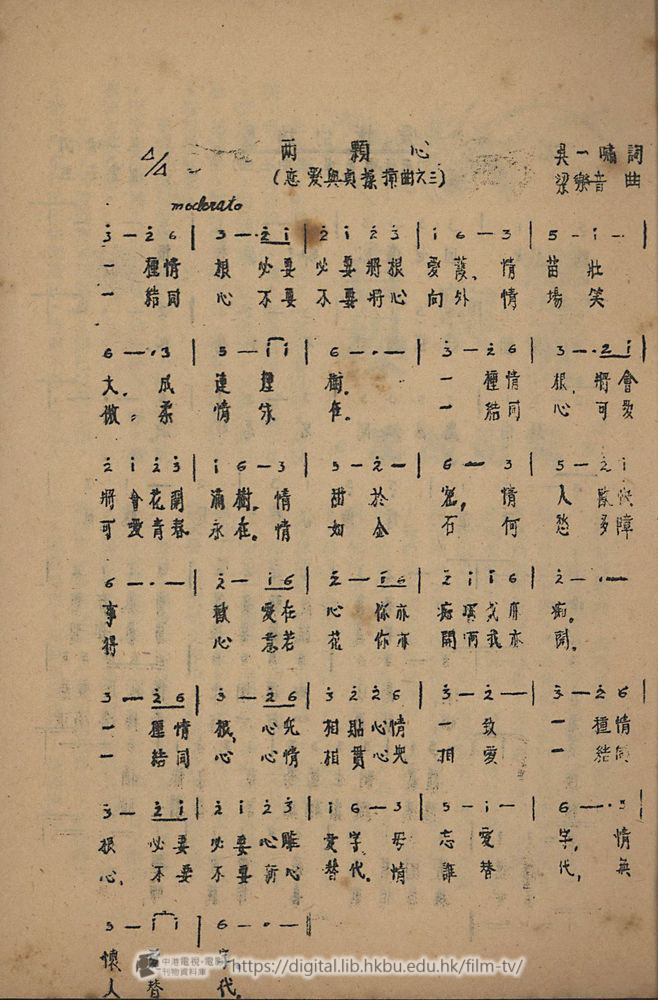 4/4 兩顆心 吳一嘯 詞
(恋爱與貞操 揷曲之三) 梁樂音 曲
moderato
3 — 2 6 | 3 — · 2 i | 2 i 2 3 | i 6 — 3 | 5 — i — |
一 種情 根 必要 必要將根 愛護、情 苗 壯
一 結同 心 不要 不要將心 向外 情 場 笑
6 — · 3 | 5 — i i | 6 — · — | 3 — 2 6 | 3 — · 2 i |
大。成 連 理 樹。 一 種情 根,將會
傲。柔 情 永 在。 一 結同 心 可愛
2 i 2 3 | i 6 — 3 | 5 — 2 — | 6 — 3 | 5 — 2 i
將會花開 滿樹。情 甜 於 蜜,情 人
可愛青春 永在。情 如 金 石 何 愁 多障
6 — · — | 2 — i 6 | 2 — i 6 | 2 i i 6 | 2 — · —
事 歡 愛在 心 你亦 痴 亦 痴。
得 心 意若 花 你亦 開 我亦 開。
3 — 2 6 | 3 — 2 6 | 3 2 2 6 | 3 — 2 — | 3 — 2 6
一 種情 根,心兒 相貼心情 一 致 一 種情
一 結同 心 心情 相貫心兒 相 愛 一 結同
3 — 2 i | 2 i 2 3 | i 6 — 3 | 5 — i — | 6 — · 3 |
根, 必要 必要心 字。毋 忘 愛 字,情
心, 不要 不要 心 替代。情 誰 替 代,無
3 — i i | 6 — · — |
懷 字。
人 替 代。
中港電視·電影
刊物資料庫 https://digital.lib.hkbu.edu.hk/film-tv/